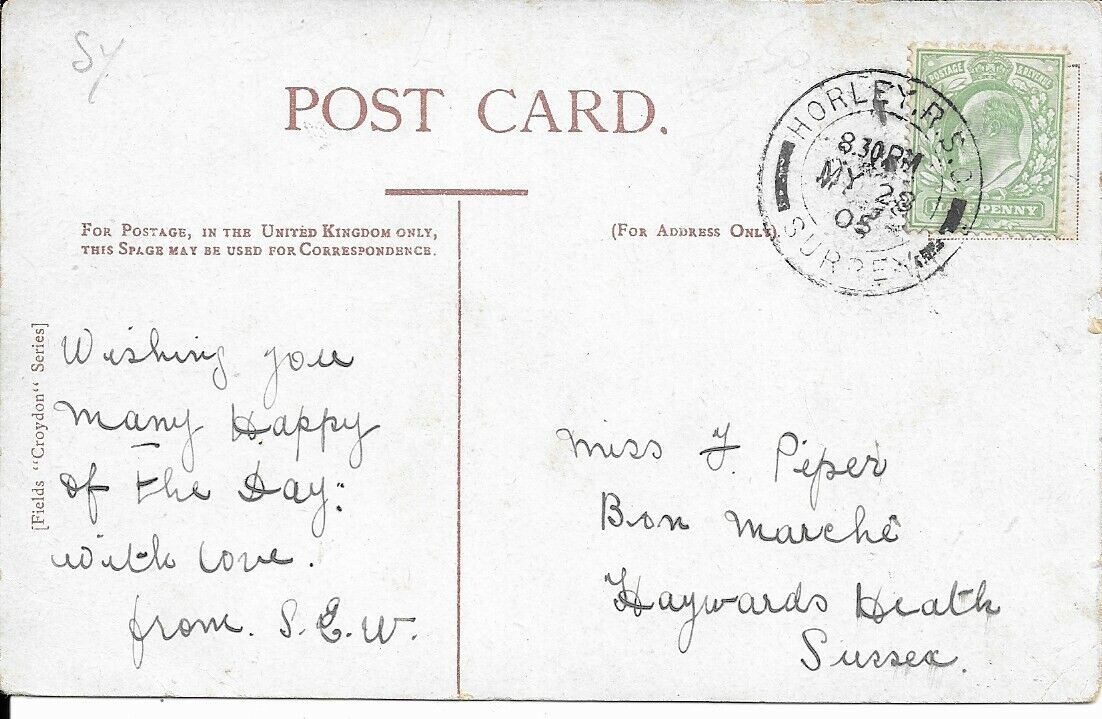 Sy
POST CARD.
FOR POSTAGE, IN THE UNITED KINGDOM ONLY,
THIS SPACE MAY BE USED FOR CORRESPONDENCE.
(FOR ADDRESS ONLY).
HORLEY. R.S.O.
8.30PM
MY 28
05
SURREY
POSTAGE & REVENUE
HALFPENNY
[Fields "Croydon" Series]
Wishing you
Many Happy
of the Day:
with love.
from. S. E. W.
Miss F. Piper
Bon Marchê
Haywards Heath
Sussex.